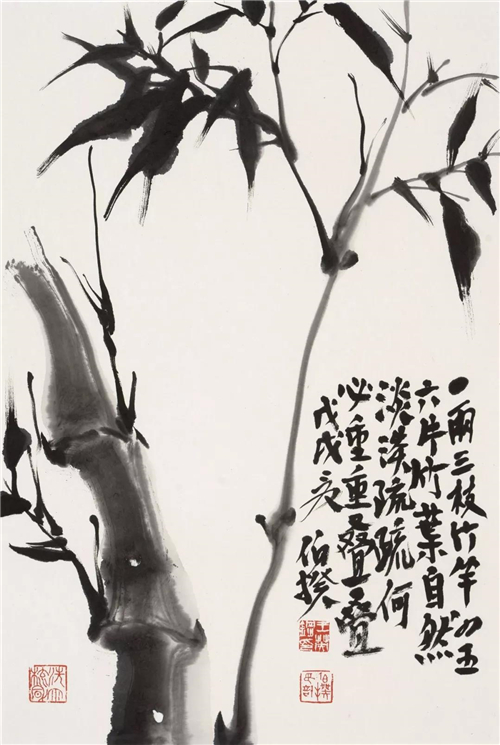 一兩三枝竹竿四五
六片竹葉自然
淡淡疏疏何
必重重疊疊
戊戌夏 伯揆